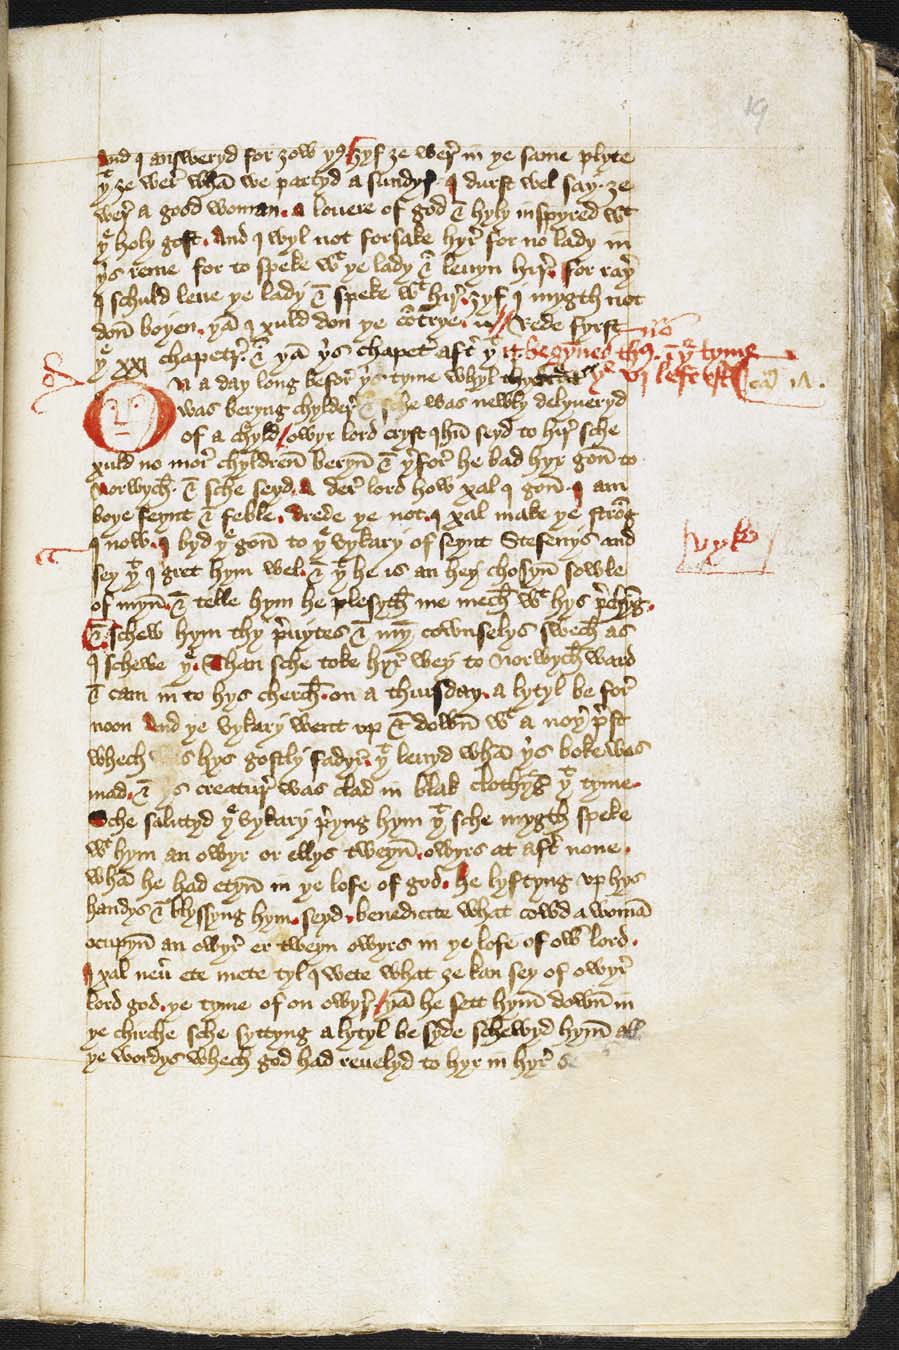 19
And I answeryd for ȝow yꝰ ȝyf ȝe wer̄ in ye same plyte
yᵗ ȝe wer̄ whā we partyd a sundyr I durst wel say ȝe
wer̄ a good woman. a louere of god & hyly inspyred wᵗ
yᵉ holy gost. And I wyl not forsake hyr̄ for no lady in
yis reme for to speke wᵗ ye lady & leuyn hir̄. for rayr̄
I schuld leue ye lady & speke wᵗ hir̄. ȝyf I mygth not
don̄ boyen. yā I xuld don ye cōtrye. Rede fyrst
yᵉ xxj chapetr̄. & yā yis chapetr̄ aftr̄ yᵗ
On a day long befor̄ yis tyme whyl thys creatur
was beryng chylder̄ & sche was newly delyueryd
of a chyld / owyr lord cryst ihū seyd to hir̄ sche
xuld no mor̄ chyldren̄ beryn̄ & yerfor̄ he bad hyr gon̄ to
Norwych. & sche seyd. A der̄ lord how xal I gon̄. I am
boye feynt & feble. drede ye not. I xal make ye strōg
I now. I byd yᵉ gon̄ to yᵉ vykary of seynt Stefenys and
sey yᵗ I gret hym wel. & yᵗ he is an hey chosyn̄ sowle
of myn̄. & telle hym he plesyth me mech wᵗ hys p̄chyng.
& schew hym thy p̄uytes & my cownselys swech as
I schewe yᵉ. Than sche toke hyr̄ wey to Norwych ward
& cam in to hys cherch on a thursday. a lytyl be for̄
noon And ye vykary went vp & down̄ wᵗ a noyr̄ p̄st
whech was hys gostly fadyr̄. yᵗ leuyd whā yis boke was
mad. & yis creatur̄ was clad in blak clothyng yᵗ tyme.
Sche salutyd yᵉ vykary p̄yng hym yᵗ sche mygth speke
wᵗ hym an owyr or ellys tweyn̄. owyrs at aftr̄ none.
whā he had etyn̄ in ye lofe of god. he lyftyng vp hys
handys & blyssyng hym. seyd. benedicite what cowd a womā
ocupyn̄ an owyr̄ er tweyn owyrs in ye lofe of ow̄ lord.
I xal neū ete mete tyl I wete what ȝe kan sey of owyr̄
lord god. ye tyme of on owyr̄. / yā he sett hym̄ down̄ in
ye chirche sche syttyng a lytyl be syde schewyd hym̄ all
ye wordys whech god had reuelyd to hyr in hyr̄
vyk